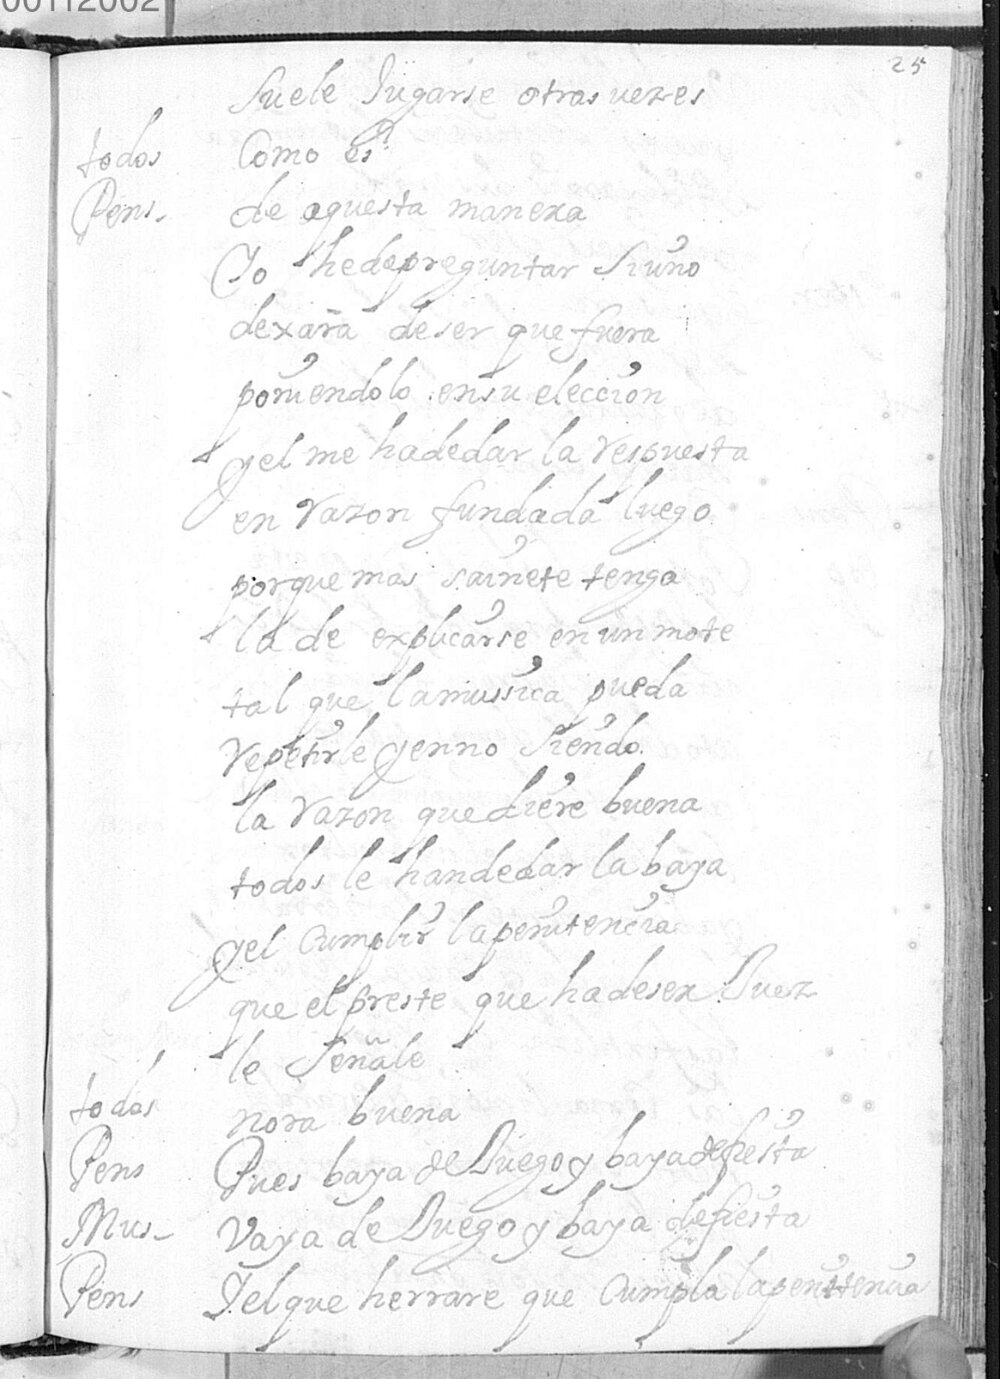 00112002
25
Suele Jugarse otras uezes
todos Como es?
Pens. de aquesta manera
Yo hedepreguntar Siuno
dexara deser que fuera
poniendolo ensu eleccion
yel me hadedar la respuesta
en razon fundada luego
porque mas sainete tenga
la de explicarse en un mote
tal que lamussica pueda
repetirle yenno Siendo
la razon que diere buena
todos le handedar la baya
yel Cumplir lapenitencia
que el preste que hadeser Juez
le Señale
todos nora buena
Pens Pues baya de Juego y baya defiesta
Mus. Vaya de Juego y baya defiesta
Pens Yelque herrare que Cumpla lapenitencia